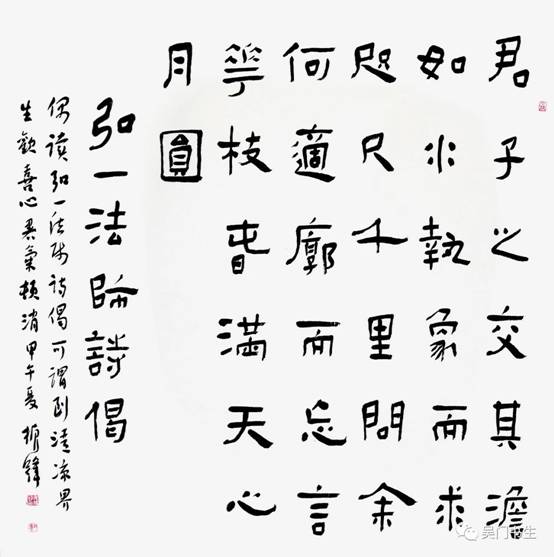 君子之交其澹
如水執象而求
咫尺千里問余
何適廓而忘言
華枝春滿天心
月圓
弘一法師詩偈
偶讀弘一法師詩偈可謂到清涼界
生歡喜心暑氣頓消甲午夏
吴门书生